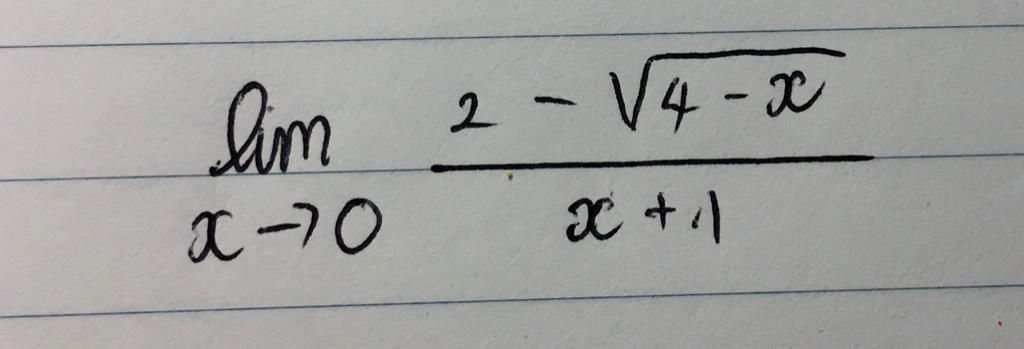 lim x→0 (2 - √(4 - x)) / (x + 1)